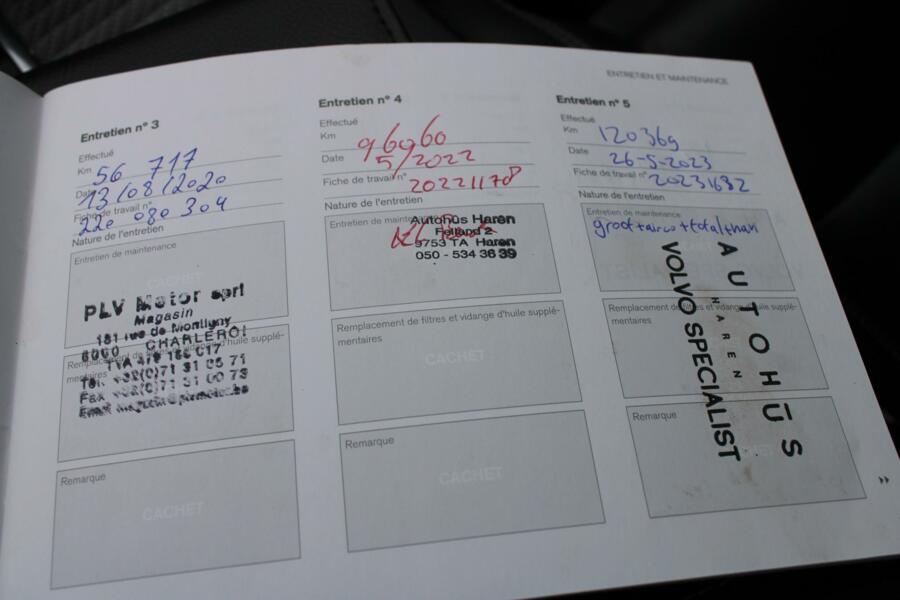 ENTRETIEN ET MAINTENANCE
Entretien n° 3
Effectué
Km 56 717
Date 13/08/2020
Fiche de travail n°
220 080 304
Nature de l'entretien
Entretien de maintenance
CACHET
PLV Motor sprl
Magasin
181 rue de Montigny
6000 CHARLEROI
Remplacement de filtres et vidange d'huile supplé-
mentaires
Remarque
CACHET
Entretien n° 4
Effectué
Km 96060
Date 5/2022
Fiche de travail n° 20221178
Nature de l'entretien
Entretien de maintenance
Autohus Haren
Felland 2
9753 TA Haren
050 - 534 36 39
Remplacement de filtres et vidange d'huile supplé-
mentaires
CACHET
Remarque
CACHET
Entretien n° 5
Effectué
Km 120369
Date 26-5-2023
Fiche de travail n° 20231682
Nature de l'entretien
Entretien de maintenance
groot+airco+total
AUTOHŪS
HAREN
VOLVO SPECIALIST
Remplacement de filtres et vidange d'huile supplé-
mentaires
Remarque